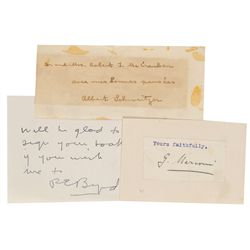 Mr and Mrs. Robert
avec mes bonnes pensées
Albert Schweitzer
Will be glad to
sign your book
if you wish
me to
R E Byrd
Yours faithfully,
G. Marconi